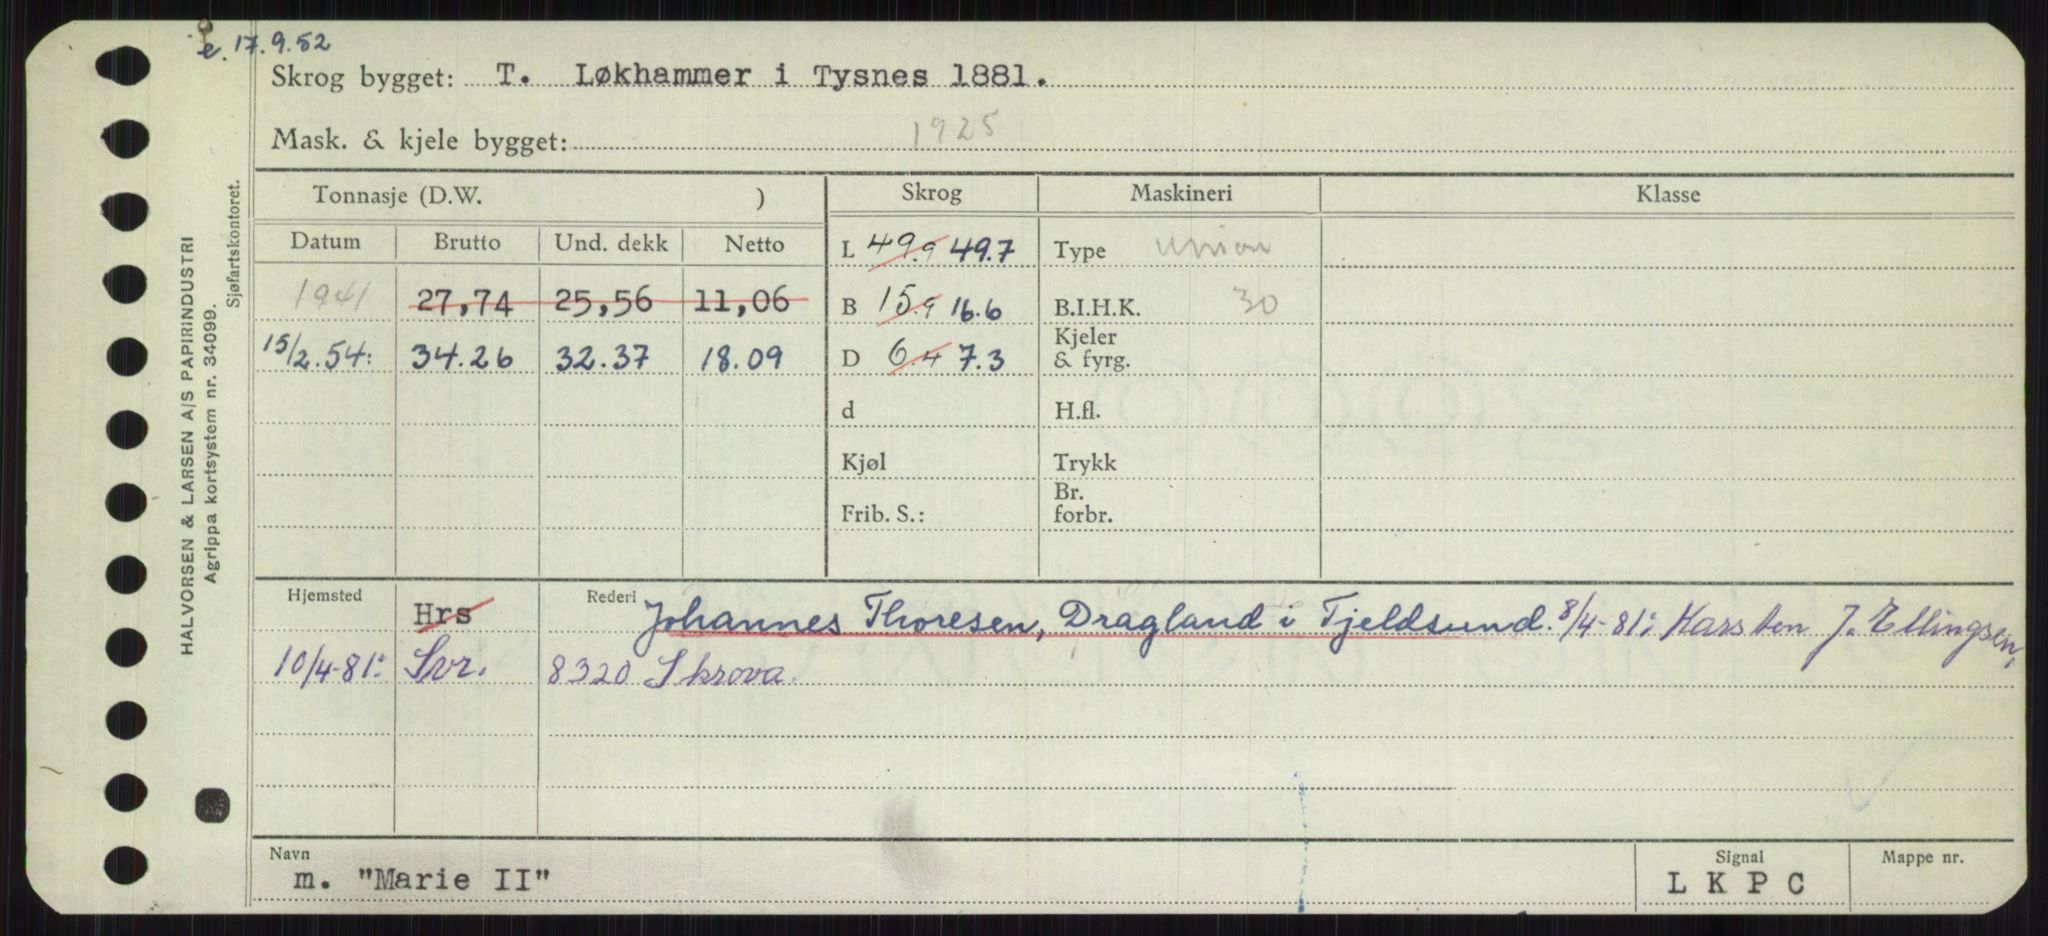 e. 17.9.52
Skrog bygget: T. Løkhammer i Tysnes 1881.
Mask. & kjele bygget: 1925
Tonnasje (D.W. ) Skrog Maskineri Klasse
Datum Brutto Und. dekk Netto L 49.9 49.7 Type Union
1941 27,74 25,56 11,06 B 15.9 16.6 B.I.H.K. 30
15/2.54: 34.26 32.37 18.09 D 6.4 7.3 Kjeler & fyrg.
d H.fl.
Kjøl Trykk
Frib. S.: Br. forbr.
Hjemsted Hrs Rederi Johannes Thoresen, Dragland i Tjeldsund. 8/4-81: Karsten J. Ellingsen,
10/4-81: Svr. 8320 Skrova.
Navn Signal Mappe nr.
m. "Marie II" LKPC
HALVORSEN & LARSEN A/S PAPIRINDUSTRI
Agrippa kortsystem nr. 34099.
Sjøfartskontoret.